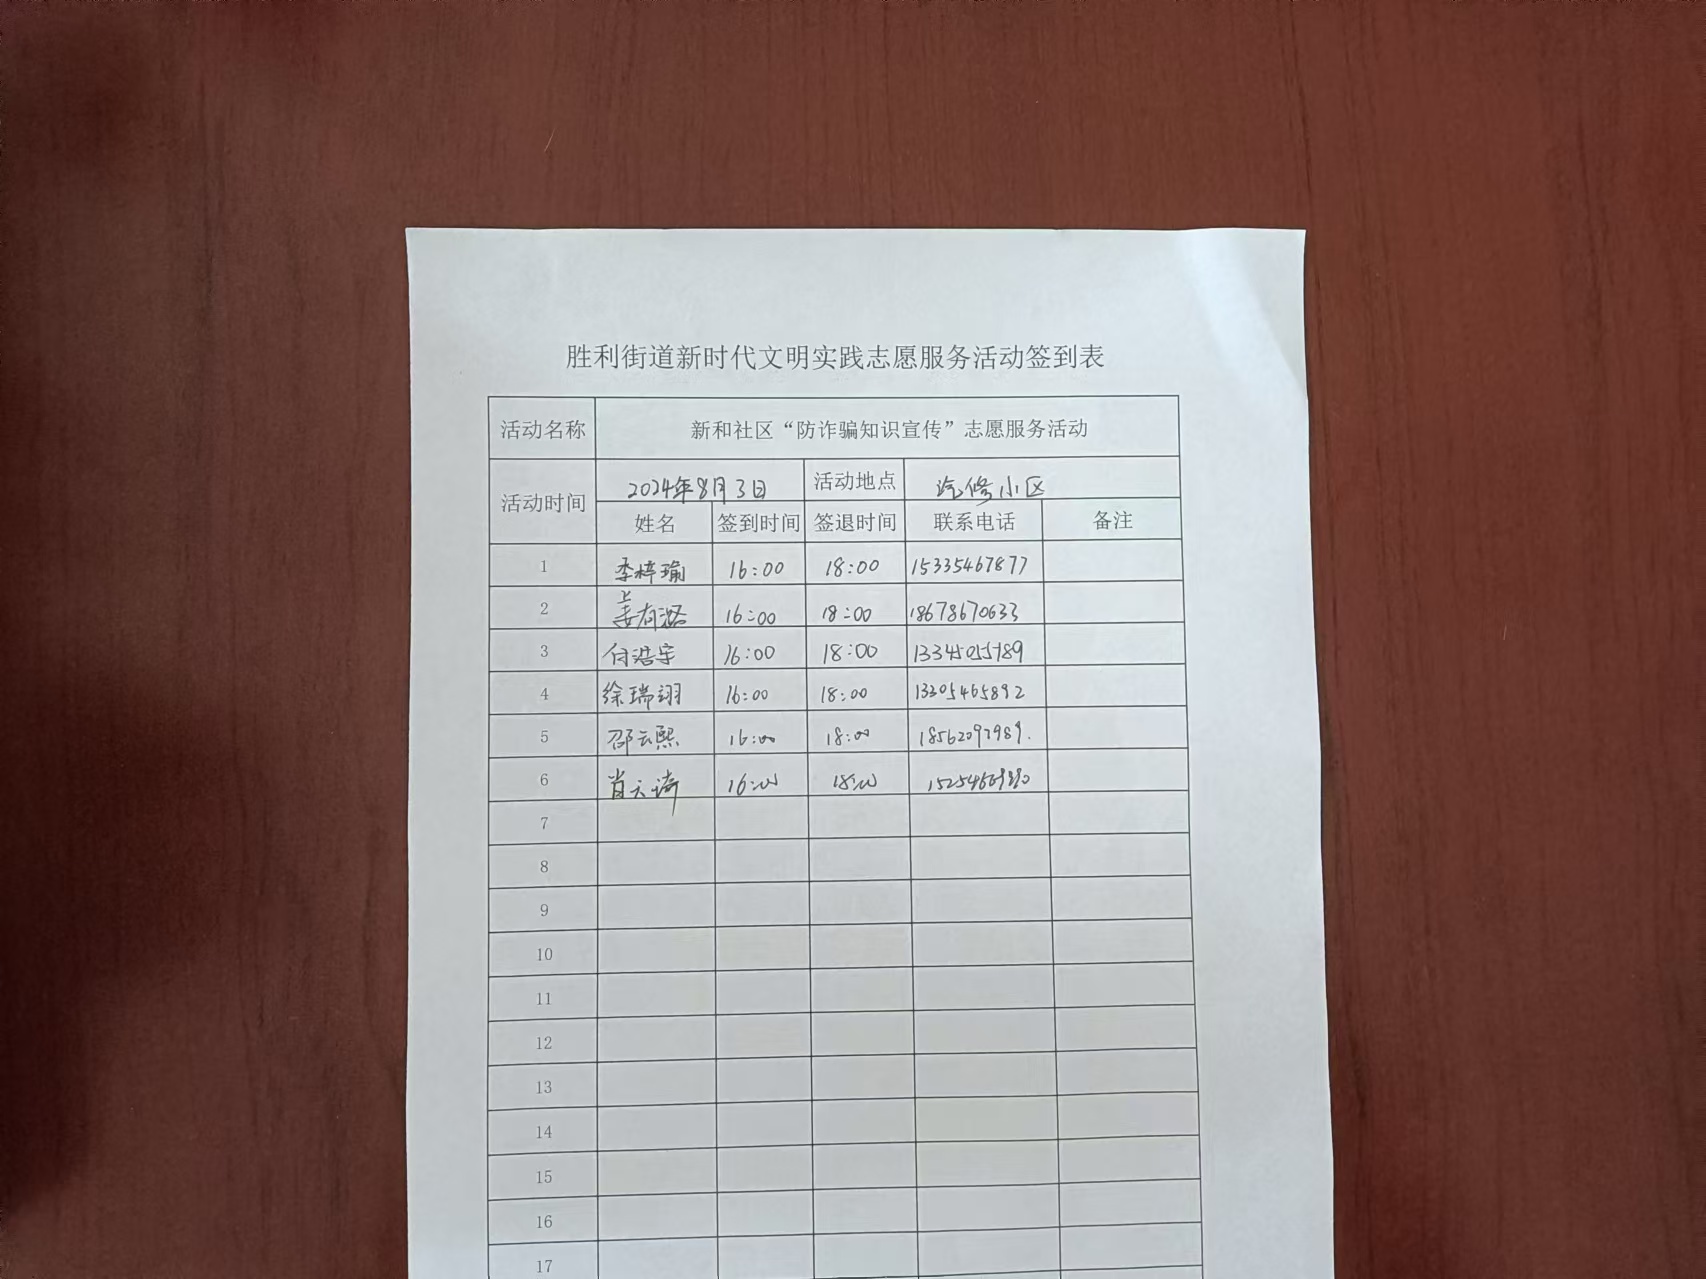 胜利街道新时代文明实践志愿服务活动签到表
活动名称 新和社区“防诈骗知识宣传”志愿服务活动
活动时间 2024年8月3日 活动地点 汽修小区
姓名 签到时间 签退时间 联系电话 备注
1 李梓瑜 16:00 18:00 15335467877
2 16:00 18:00 18678670633
3 付浩宇 16:00 18:00
4 徐瑞翊 16:00 18:00 13305465892
5 邵云熙 16:00 18:00 18562092989.
6 16:00 18:00
7
8
9
10
11
12
13
14
15
16
17